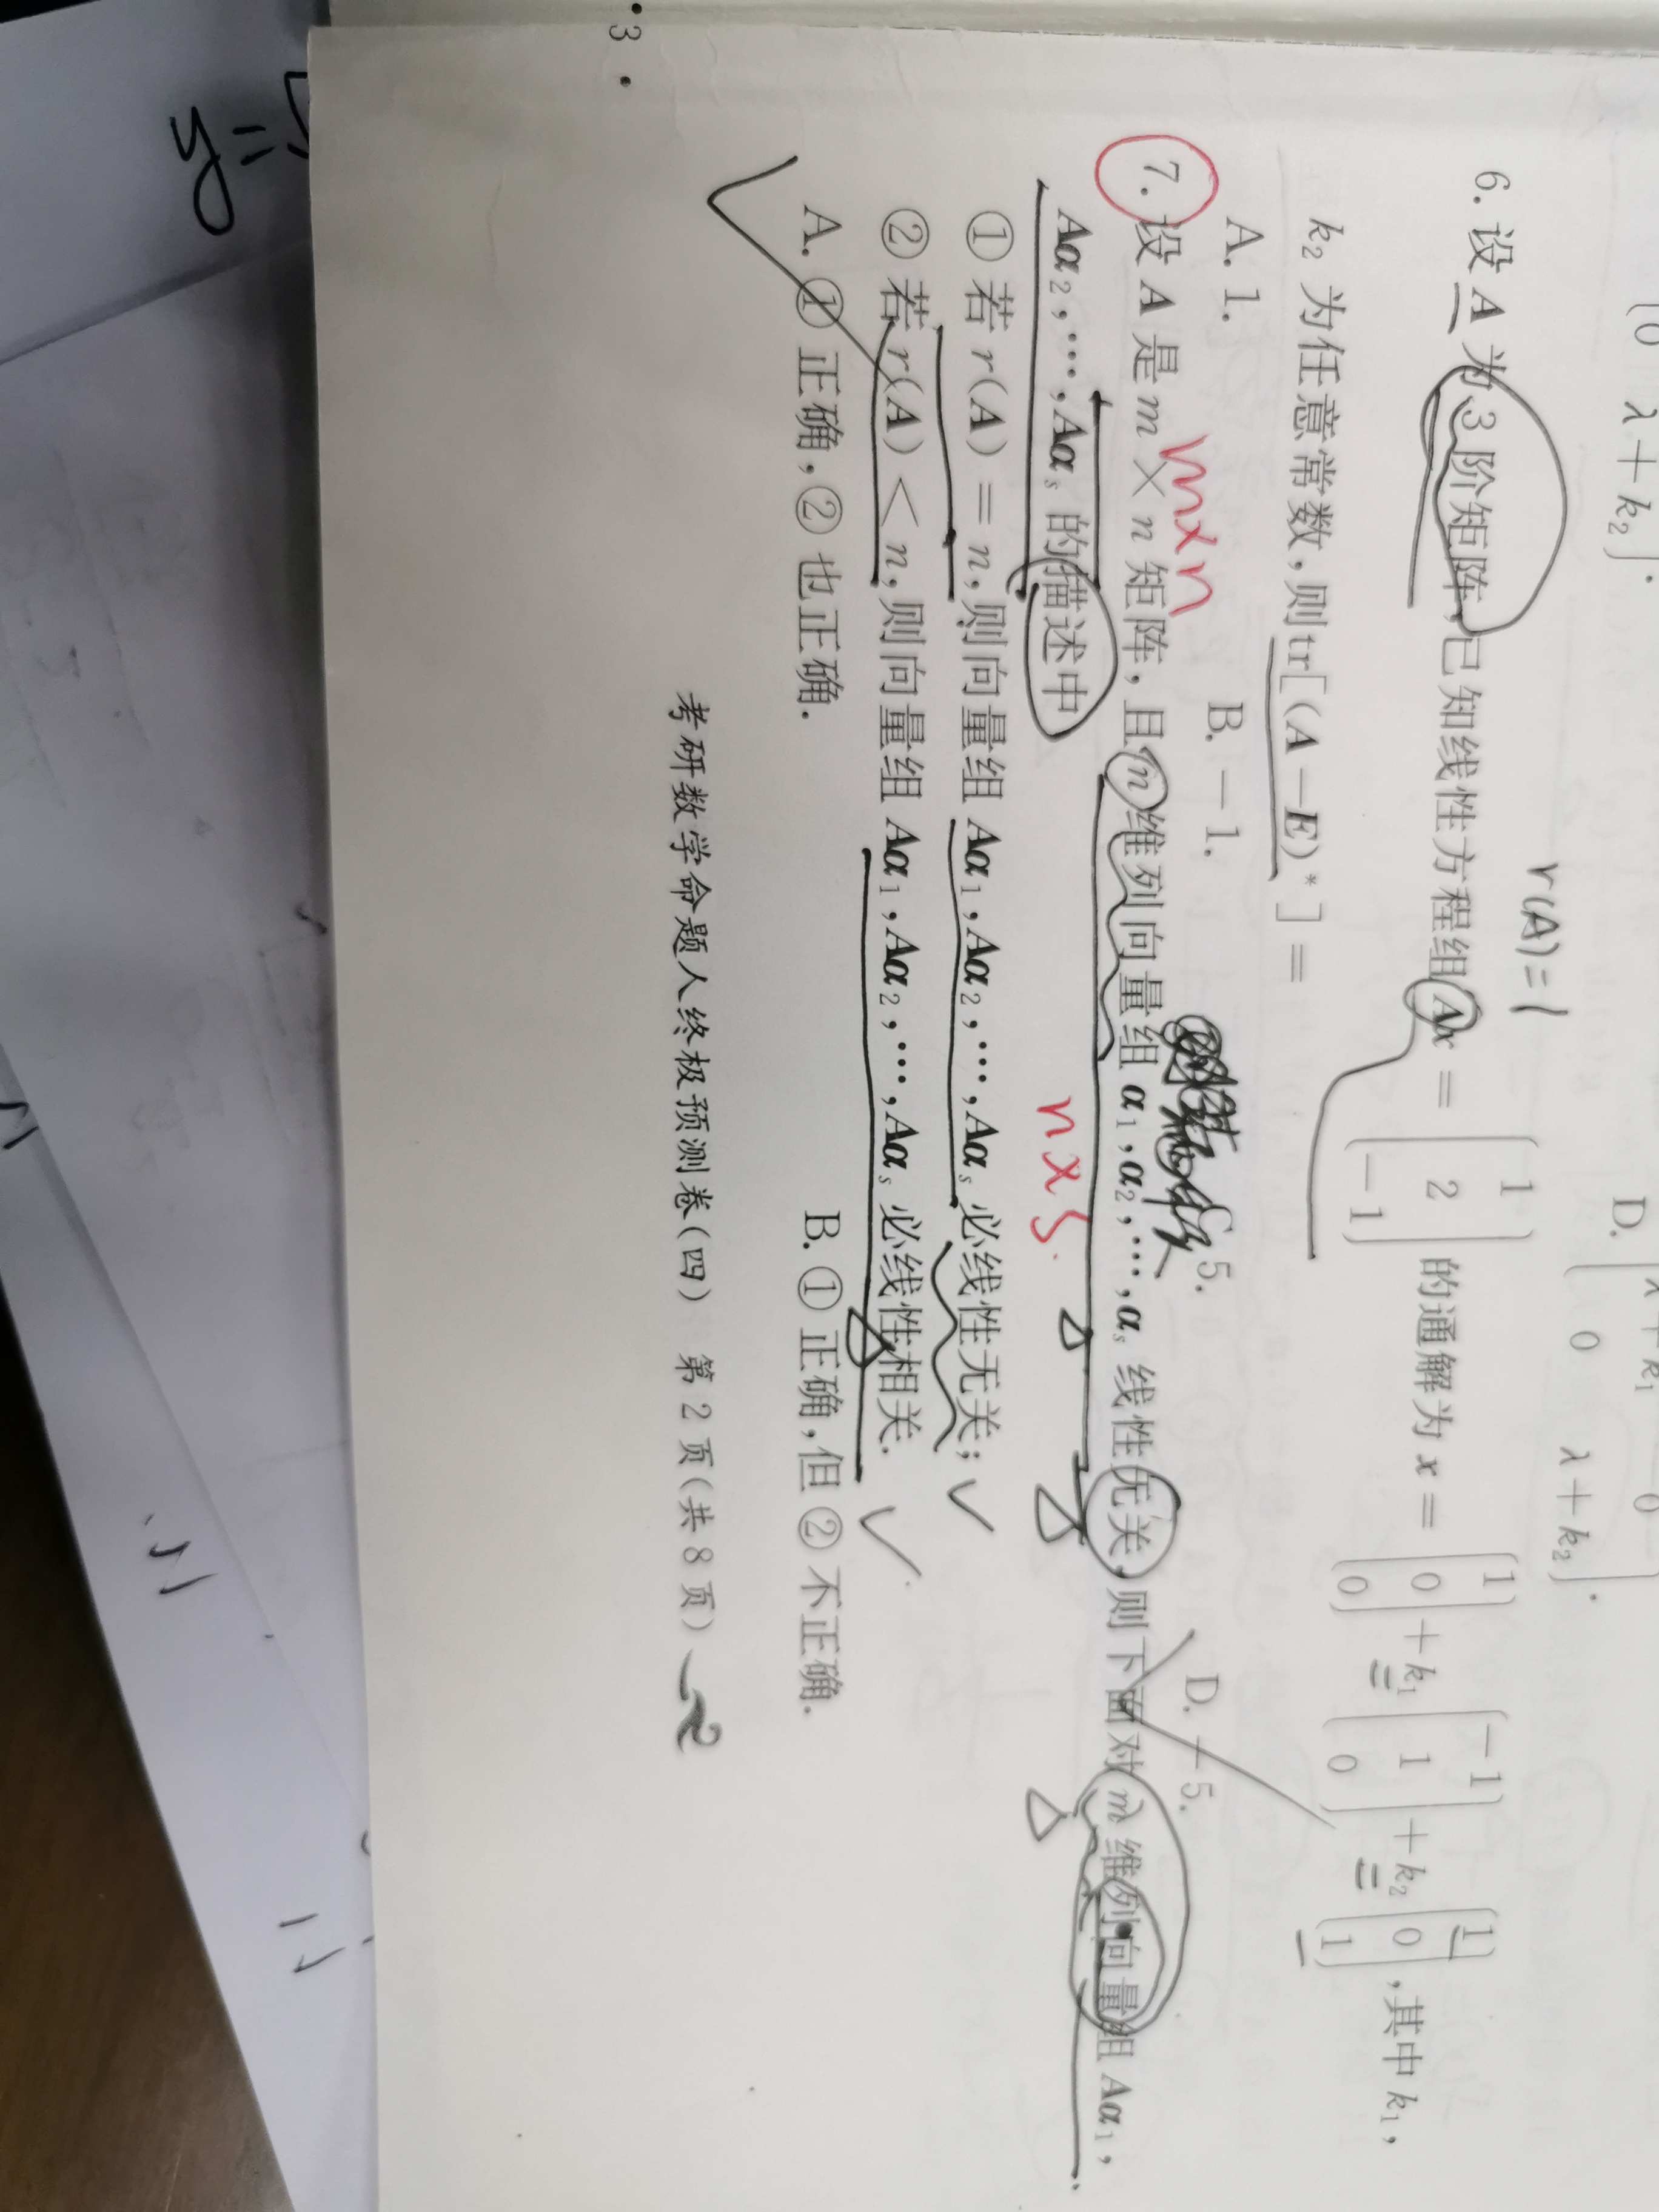 (0 λ+k₂).
D. (λ+k₁ 0
0 λ+k₂).
r(A)=1
6. 设 A 为 3 阶矩阵,已知线性方程组 Ax = (1 2 -1) 的通解为 x = (1 0 0) + k₁ (-1 1 0) + k₂ (1 0 1) ,其中 k₁,
k₂ 为任意常数,则 tr[(A-E)*] =
A. 1. B. -1. C. 5. D. -5.
m×n
7. 设 A 是 m×n 矩阵, 且 n 维列向量组 α₁,α₂,…,αₛ 线性无关,则下面对 m 维列向量组 Aα₁,
n×s
Aα₂,…,Aαₛ 的描述中
① 若 r(A) = n, 则向量组 Aα₁,Aα₂,…,Aαₛ 必线性无关;
② 若 r(A) < n, 则向量组 Aα₁,Aα₂,…,Aαₛ 必线性相关.
A. ① 正确,② 也正确. B. ① 正确,但 ② 不正确.
考研数学命题人终极预测卷(四) 第 2 页(共 8 页)
·3·